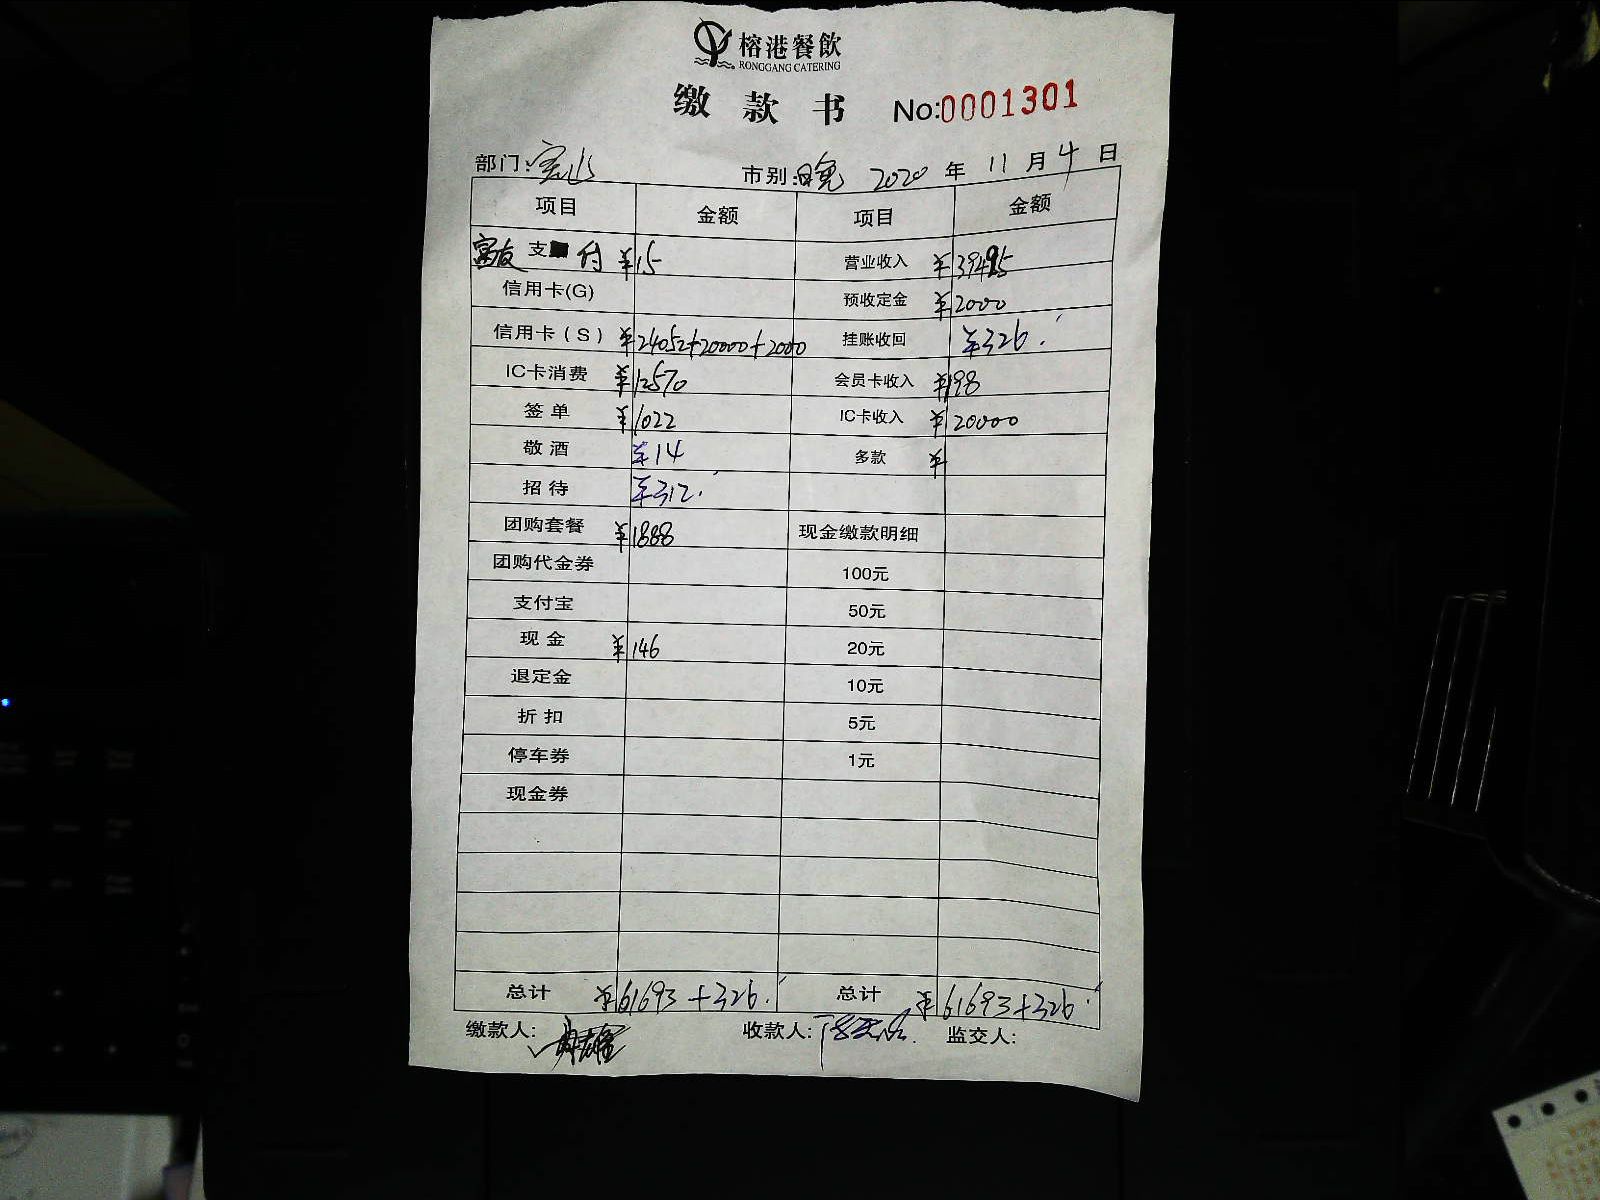 榕港餐飲
RONGGANG CATERING
缴款书 No:0001301
部门:宝山 市别:晚 2020年11月4日
项目 金额 项目 金额
富友支付 ¥15 营业收入 ¥39495
信用卡(G) 预收定金 ¥2000
信用卡(S) ¥24052+20000+2000 挂账收回 ¥326.
IC卡消费 ¥12570 会员卡收入 ¥198
签单 ¥1022 IC卡收入 ¥20000
敬酒 ¥14 多款 ¥
招待 ¥312.
团购套餐 ¥1888 现金缴款明细
团购代金券 100元
支付宝 50元
现金 ¥146 20元
退定金 10元
折扣 5元
停车券 1元
现金券
总计 ¥61693+326. 总计 ¥61693+326.
缴款人: 收款人: 监交人: